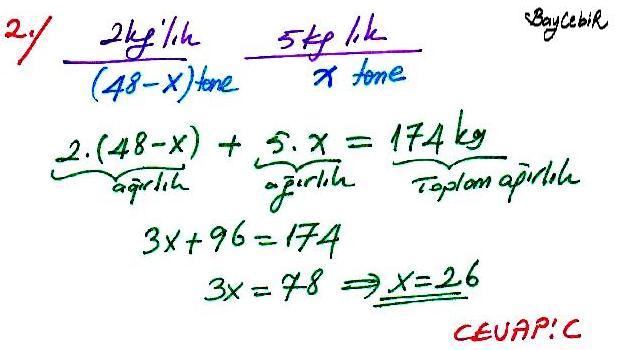 2./ 2kg'lık 5kg lık BayCebiR
(48-x) tane x tane
2.(48-x) + 5.x = 174 kg
ağırlık ağırlık Toplam ağırlık
3x+96=174
3x=78 ⇒ x=26
CEVAP: C